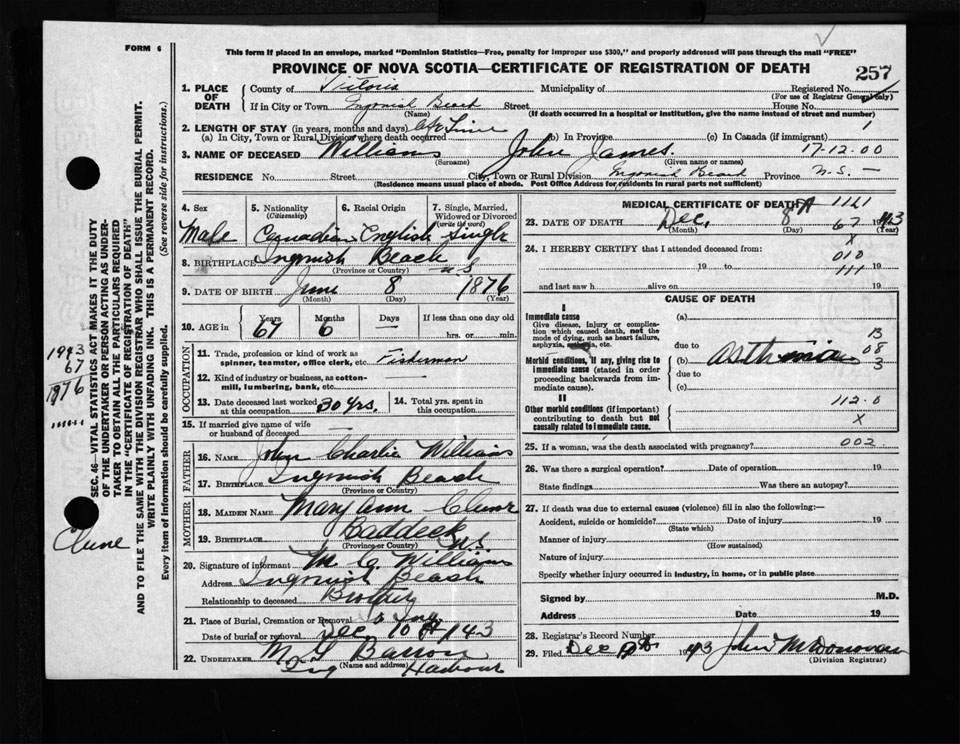 FORM 6
This form if placed in an envelope, marked "Dominion Statistics—Free, penalty for improper use $300," and properly addressed will pass through the mail "FREE"
PROVINCE OF NOVA SCOTIA—CERTIFICATE OF REGISTRATION OF DEATH
257
1. PLACE OF DEATH
County of Victoria Municipality of Registered No.
(For use of Registrar General only)
If in City or Town Ingonish Beach Street House No.
(Name) (If death occurred in a hospital or institution, give the name instead of street and number)
2. LENGTH OF STAY (in years, months and days) Life Time 1
(a) In City, Town or Rural Division where death occurred (b) In Province (c) In Canada (if immigrant)
3. NAME OF DECEASED Williams John James. 17-12-00
(Surname) (Given name or names)
RESIDENCE No. Street City, Town or Rural Division Ingonish Beach Province N.S. —
(Residence means usual place of abode. Post Office Address for residents in rural parts not sufficient)
4. Sex Male
5. Nationality (Citizenship) Canadian
6. Racial Origin English
7. Single, Married, Widowed or Divorced (write the word) Single
8. BIRTHPLACE Ingonish Beach N S
(Province or Country)
9. DATE OF BIRTH June 8 1876
(Month) (Day) (Year)
10. AGE in Years 67 Months 6 Days — If less than one day old hrs. or min.
OCCUPATION
11. Trade, profession or kind of work as spinner, teamster, office clerk, etc. Fisherman
12. Kind of industry or business, as cotton-mill, lumbering, bank, etc. —
13. Date deceased last worked at this occupation 30 yrs.
14. Total yrs. spent in this occupation
15. If married give name of wife or husband of deceased —
FATHER
16. NAME John Charlie Williams
17. BIRTHPLACE Ingonish Beach
(Province or Country)
MOTHER
18. MAIDEN NAME Mary Ann Clune
19. BIRTHPLACE Baddeck N.S
(Province or Country)
20. Signature of informant M. C. Williams
Address Ingonish Beach
Relationship to deceased Brother
21. Place of Burial, Cremation or Removal
Date of burial or removal Dec 10th 1943
22. UNDERTAKER Barron
(Name and address) Ing Harbour
MEDICAL CERTIFICATE OF DEATH 1141
23. DATE OF DEATH Dec. 8 67 1943
(Month) (Day) (Year)
X
24. I HEREBY CERTIFY that I attended deceased from:
010
19 to 19
111
and last saw h alive on 19
CAUSE OF DEATH
I
Immediate cause
Give disease, injury or complication which caused death, not the mode of dying, such as heart failure, asphyxia, asthenia, etc.
(a)
due to
Morbid conditions, if any, giving rise to immediate cause (stated in order proceeding backwards from immediate cause).
(b) Asthma
due to
(c)
13
08
3
II
Other morbid conditions (if important) contributing to death but not causally related to immediate cause.
112.0
X
25. If a woman, was the death associated with pregnancy? 002
26. Was there a surgical operation? Date of operation 19
State findings Was there an autopsy?
27. If death was due to external causes (violence) fill in also the following:—
Accident, suicide or homicide? Date of injury 19
(State which)
Manner of injury
(How sustained)
Nature of injury
Specify whether injury occurred in industry, in home, or in public place
Signed by M.D.
Address Date 19
28. Registrar's Record Number
29. Filed Dec 1943 John McDonovan
(Division Registrar)
SEC. 46—VITAL STATISTICS ACT MAKES IT THE DUTY
OF THE UNDERTAKER OR PERSON ACTING AS UNDER-
TAKER TO OBTAIN ALL THE PARTICULARS REQUIRED
IN THE "CERTIFICATE OF REGISTRATION OF DEATH"
AND TO FILE THE SAME WITH THE DIVISION REGISTRAR WHO SHALL ISSUE THE BURIAL PERMIT.
WRITE PLAINLY WITH UNFADING INK. THIS IS A PERMANENT RECORD.
Every item of information should be carefully supplied. (See reverse side for instructions.)
1943
67
1876
Clune